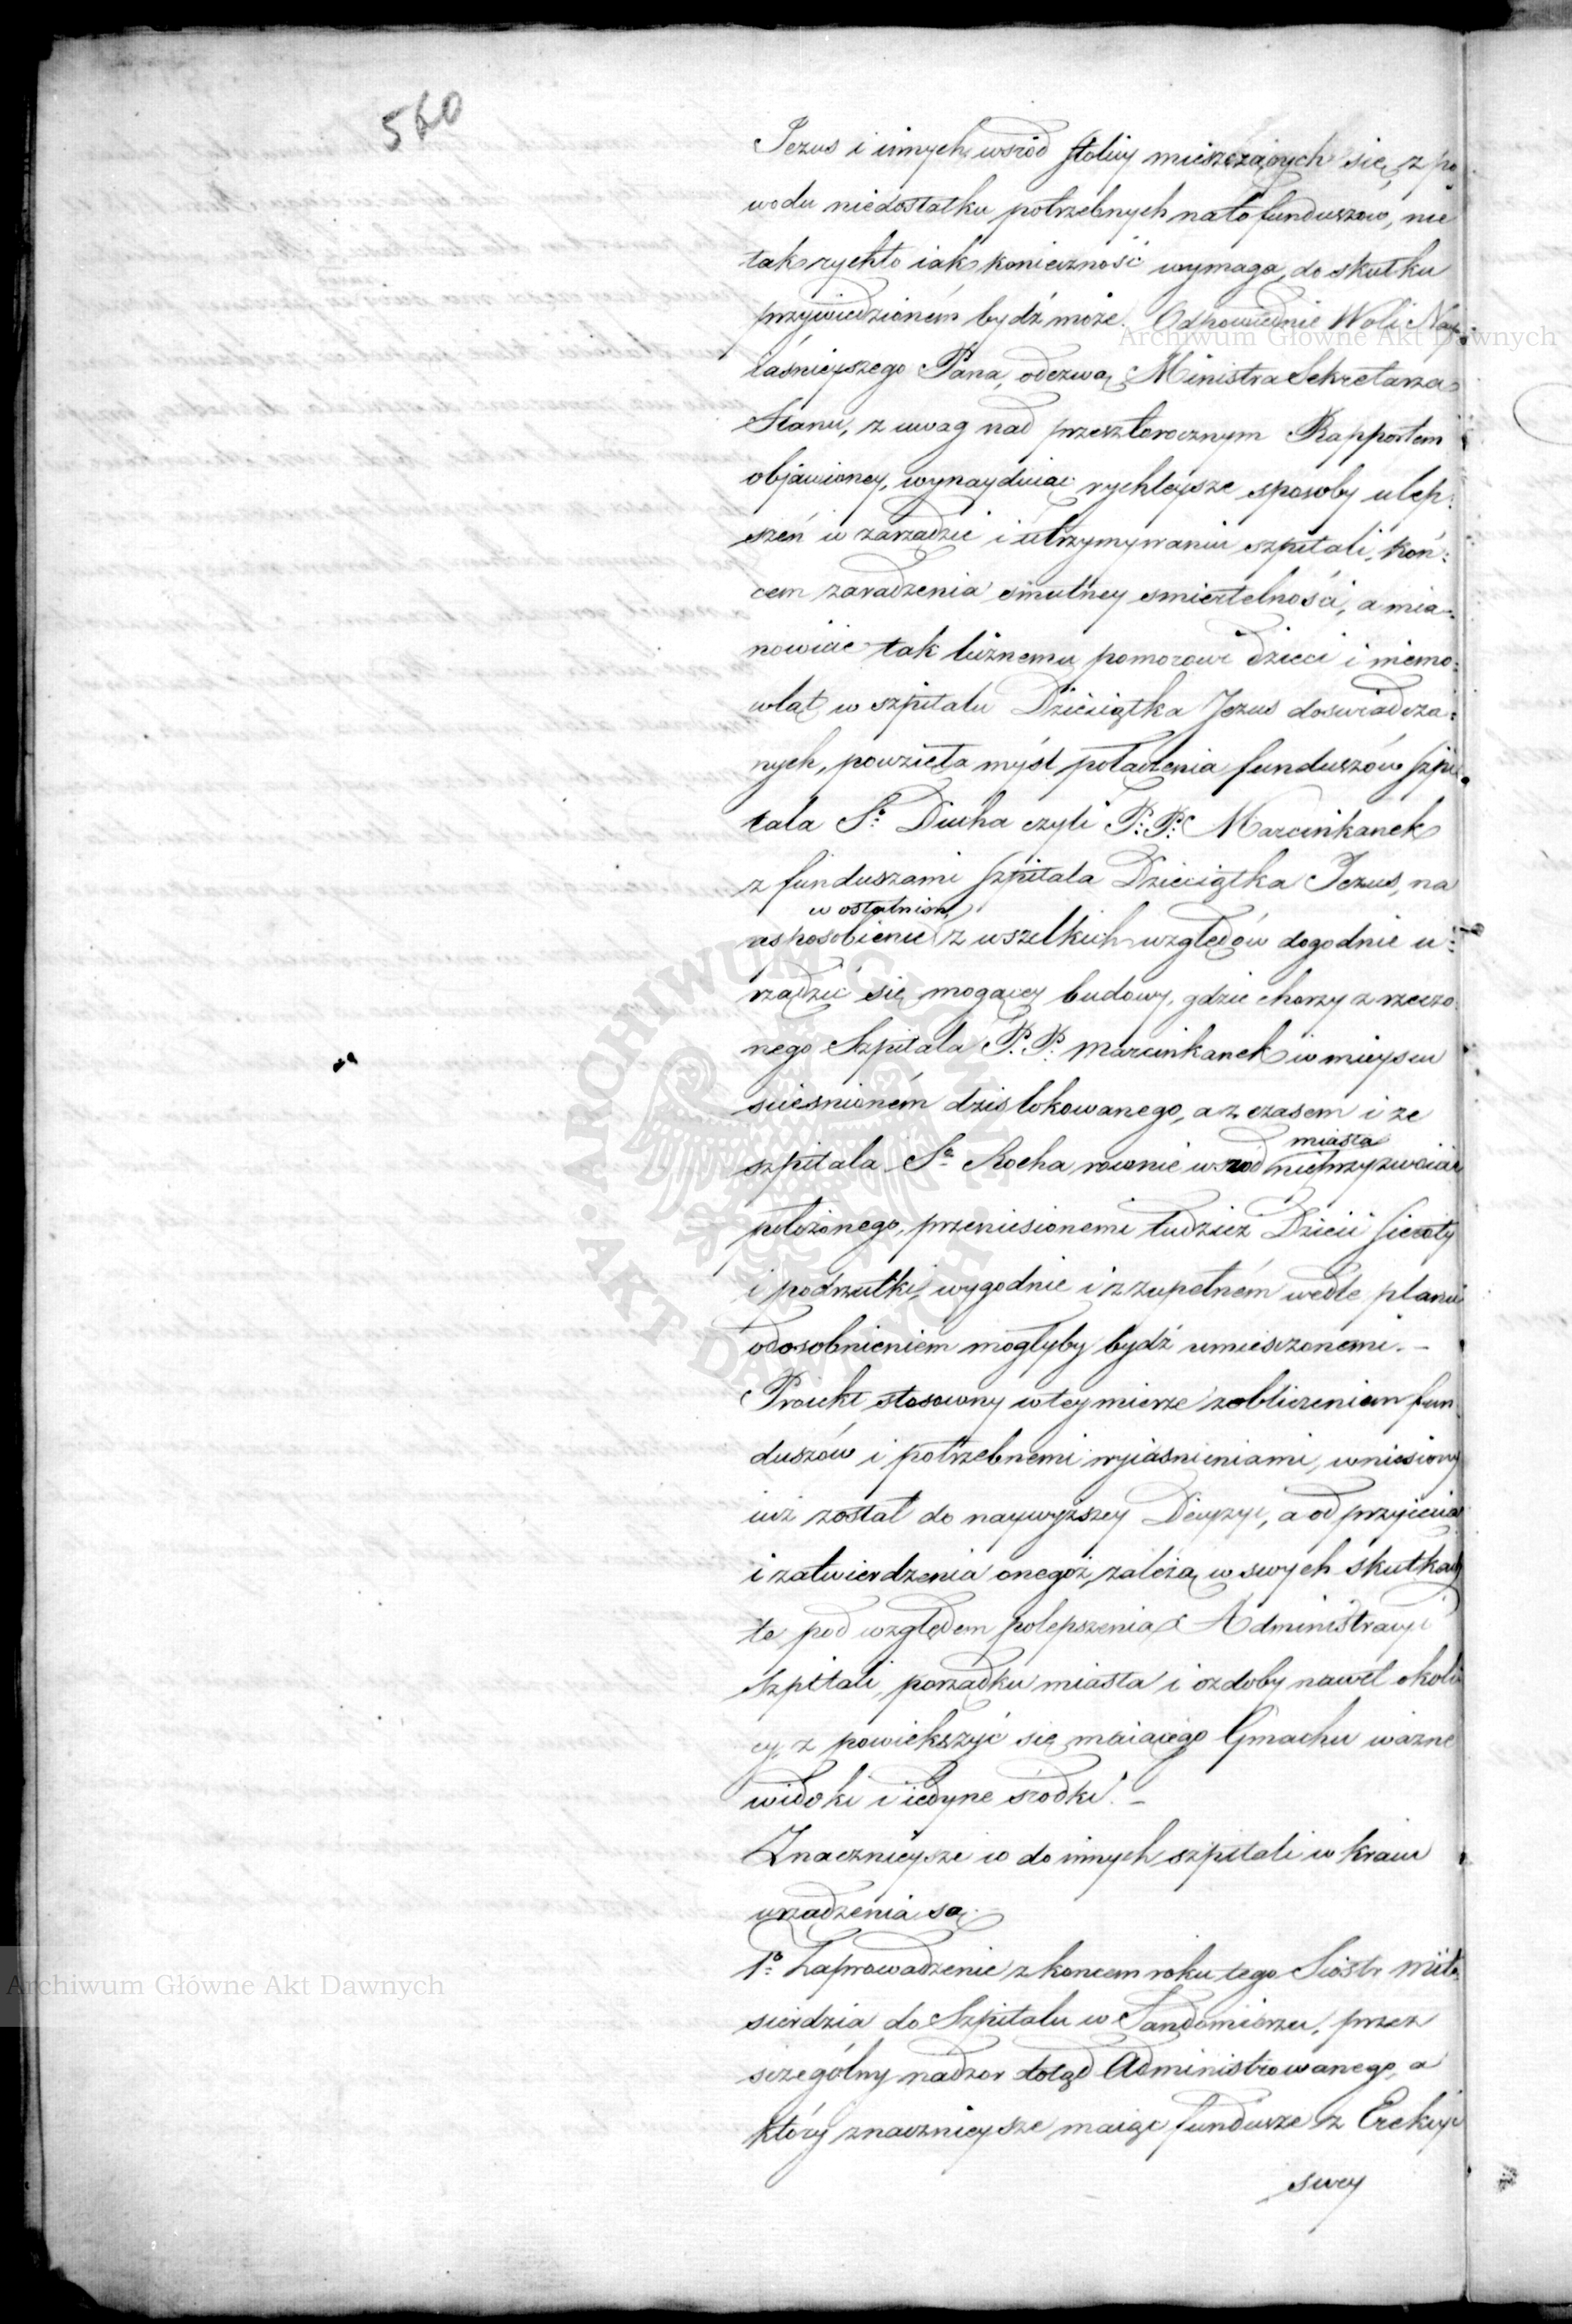 560
Jezus i innych wsród stolicy mieszczących się, z po
wodu niedostatku potrzebnych na to funduszow, nie
tak rychło iak konieczność wymaga, do skutku
przywiedzioném bydź może. Odpowiednie Woli Nay
iaśnieyszego Pana, odezwą Ministra Sekretarza
Stanu, z uwag nad przeszłorocznym Rapportem
objawioney, wynayduiąc rychleysze sposoby ulep:
szeń w zarządzie i utrzymywaniu szpitali, koń:
cem zaradzenia smutney smiertelności, a mia:
nowicie tak liźnemu pomorowi dzieci i niemo:
wląt w szpitalu Dzieciątka Jezus doswiadcza:
nych, powzięta myśl połączenia funduszów szpi
tala Sº Ducha czyli P: P: Marcinkanek
z funduszami szpitala Dzieciątka Jezus, na
w ostatnim
usposobienie z wszelkich względów dogodnie u:
rządzić się mogącey budowy, gdzie chorzy z rzeczo
nego Szpitala P. P: Marcinkanek w mieyscu
sciesnioném dzis lokowanego, a z czasem i ze
miasta
szpitala Sº Rocha rownie wsrod nieprzyzwoicie
położonego, przeniesionemi tudzież Dzieci sieroty
i podrzutki, wygodnie i z zupełném wedle planu
odosobnieniem mogłyby bydź umiesczonemi. –
Proiekt stosowny w tey mierze z obliczeniem fun
duszów i potrzebnemi wyiasnieniami, wniesiony
iuż został do naywyższey Decyzyi, a od przyięcia
i zatwierdzenia onegoż, zależą w swych skutkach
te pod względem polepszenia Administracyi
szpitali, porządku miasta i ozdoby nawet okoli
cy, z powiększyć się maiącego Gmachu ważne
widoki i iedyne srodki. –
Znacznieysze co do innych szpitali w kraiu
urządzenia są:
1º Zaprowadzenie z koncem roku tego Sióstr miło
sierdzia do Szpitalu w Sandomierzu, przez
szczególny nadzor dotąd Administrowanego, a
który znacznieysze maiąc fundusze z Erekcyi
swey
Archiwum Główne Akt Dawnych
Archiwum Główne Akt Dawnych
ARCHIWUM GŁÓWNE · AKT DAWNYCH ·